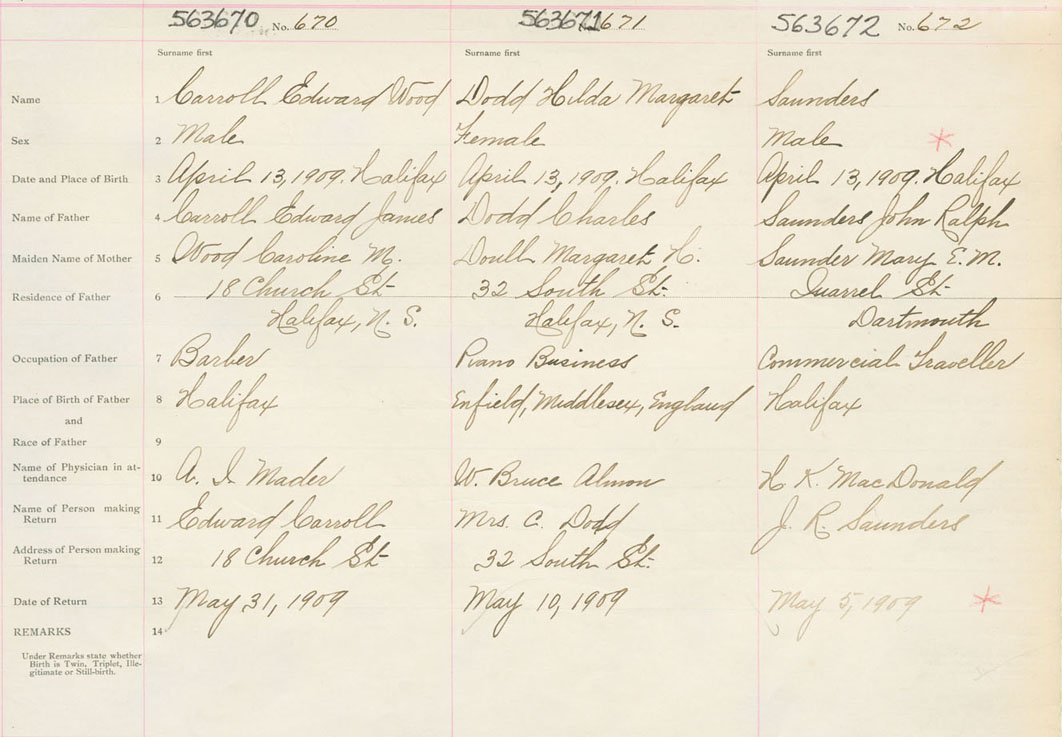 563670 No. 670 563671 671 563672 No. 672
Surname first Surname first Surname first
Name 1 Carroll Edward Wood Dodd Hilda Margaret Saunders
Sex 2 Male Female Male *
Date and Place of Birth 3 April 13, 1909. Halifax April 13, 1909. Halifax April 13, 1909. Halifax
Name of Father 4 Carroll Edward James Dodd Charles Saunders John Ralph
Maiden Name of Mother 5 Wood Caroline M. Doull Margaret H. Saunder Mary E. M.
Residence of Father 6 18 Church St 32 South St. Quarrel St
Halifax, N. S. Halifax, N. S. Dartmouth
Occupation of Father 7 Barber Piano Business Commercial Traveller
Place of Birth of Father 8 Halifax Enfield, Middlesex, England Halifax
and
Race of Father 9
Name of Physician in at-
tendance 10 A. I. Mader W. Bruce Almon H. K. MacDonald
Name of Person making
Return 11 Edward Carroll Mrs. C. Dodd J. R. Saunders
Address of Person making
Return 12 18 Church St 32 South St.
Date of Return 13 May 31, 1909 May 10, 1909 May 5, 1909 *
REMARKS 14
Under Remarks state whether
Birth is Twin, Triplet, Ille-
gitimate or Still-birth.